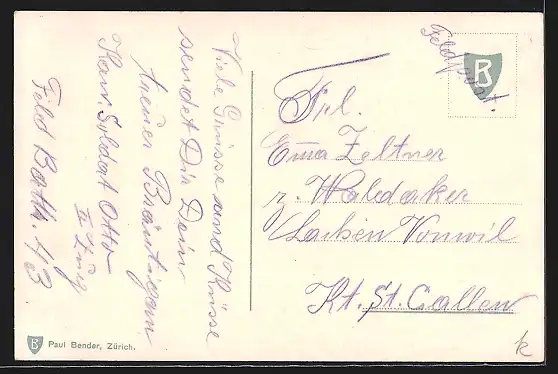 Viele Grüsse und Küsse
sendet Dir Dein
treuer Bräutigam
Kan. Soldat Otto
II Zug
Feld Battr. 43
Feldpost.
B
Frl.
Emma Zeltner
z. Waldacker
Lachen Vonwil
Kt. St. Gallen
B Paul Bender, Zürich.
k